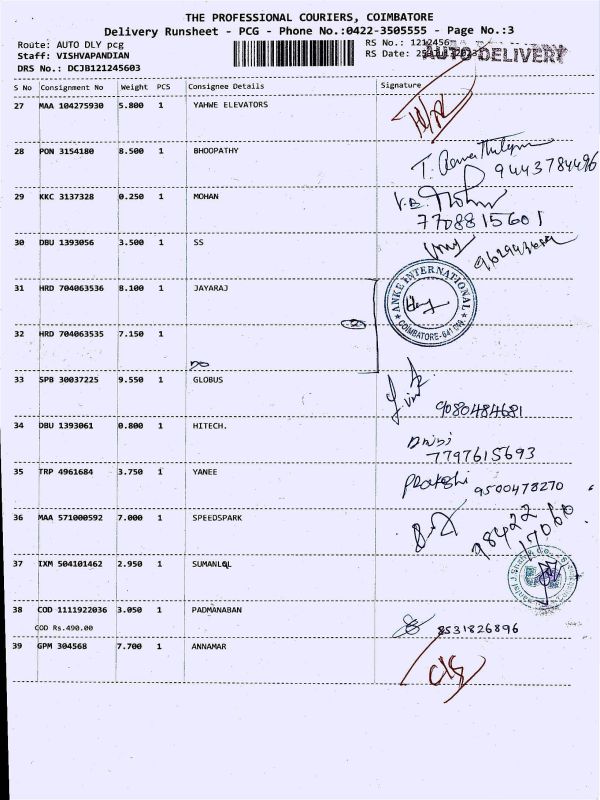 THE PROFESSIONAL COURIERS, COIMBATORE
Delivery Runsheet - PCG - Phone No.:0422-3505555 - Page No.:3
Route: AUTO DLY pcg
RS No.: 1212456
Staff: VISHVAPANDIAN
RS Date:
AUTO DELIVERY
DRS No.: DCJB121245603
S No Consignment No Weight PCS Consignee Details Signature
27 MAA 104275930 5.800 1 YAHWE ELEVATORS
28 PON 3154180 8.500 1 BHOOPATHY
9443784496
29 KKC 3137328 0.250 1 MOHAN
7708815601
30 DBU 1393056 3.500 1 SS
31 HRD 704063536 8.100 1 JAYARAJ
ANKE INTERNATIONAL
COIMBATORE-641 018
32 HRD 704063535 7.150 1
DO
33 SPB 30037225 9.550 1 GLOBUS
9080484681
34 DBU 1393061 0.800 1 HITECH.
7797615693
35 TRP 4961684 3.750 1 YANEE
9500478270
36 MAA 571000592 7.000 1 SPEEDSPARK
98422
17060
37 IXM 504101462 2.950 1 SUMANLAL
38 COD 1111922036 3.050 1 PADMANABAN
COD Rs.490.00
8531826896
39 GPM 304568 7.700 1 ANNAMAR